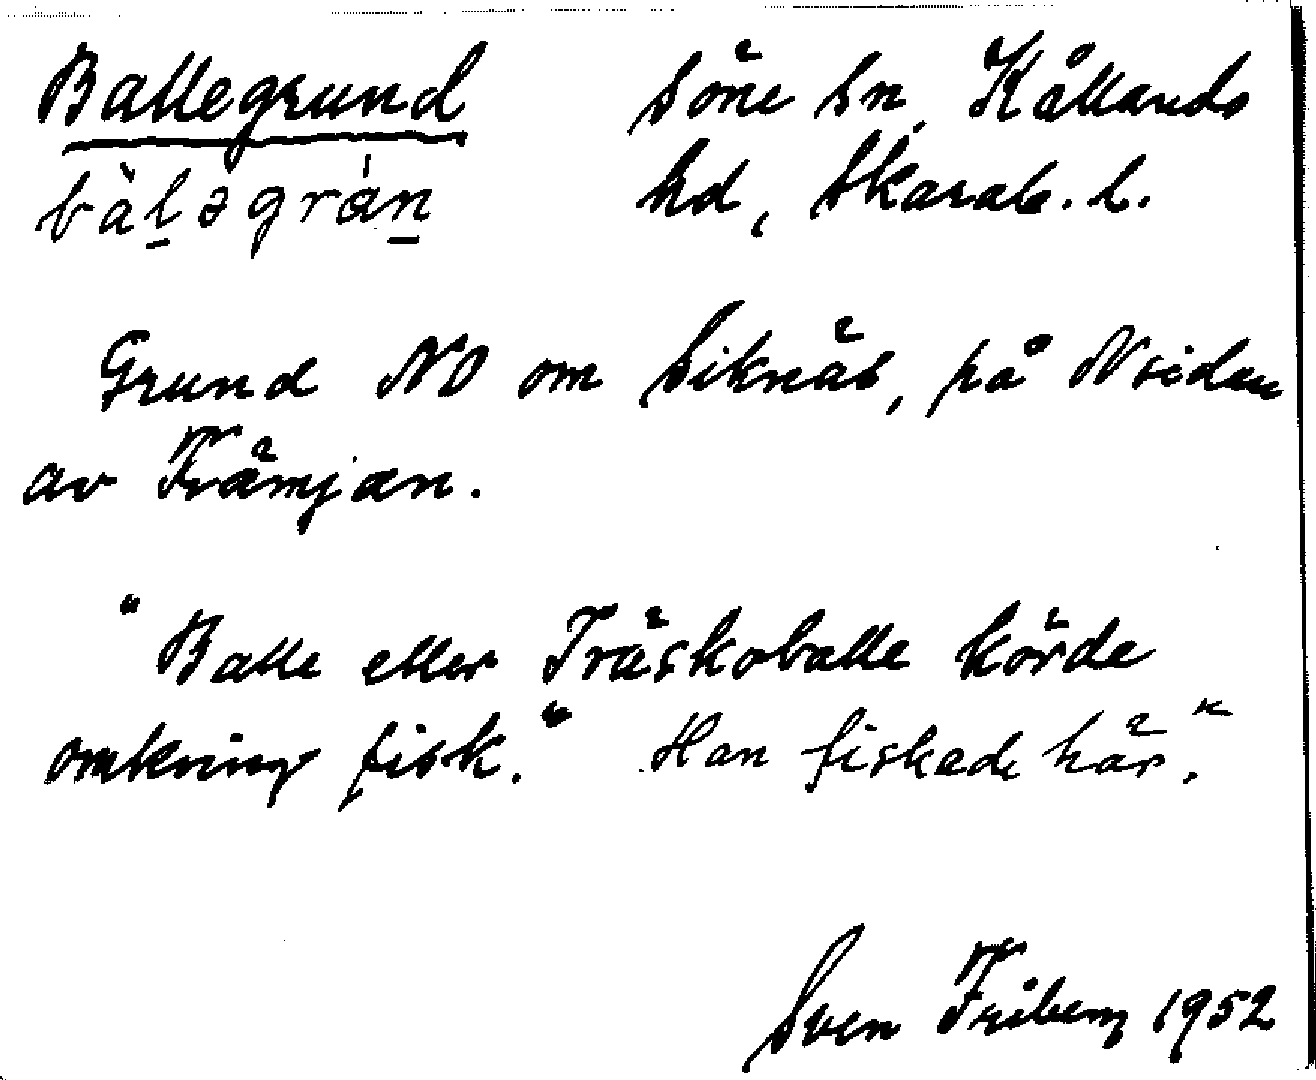 Ballegrund Söne sn, Kållands
bàl̠əgrán̠ hd, Skarab. l.
Grund NO om Siknäs, på N sidan
av Främjan.
"Balle eller Träskoballe körde
omkring fisk." Han fiskade här."
Sven Friberg 1952